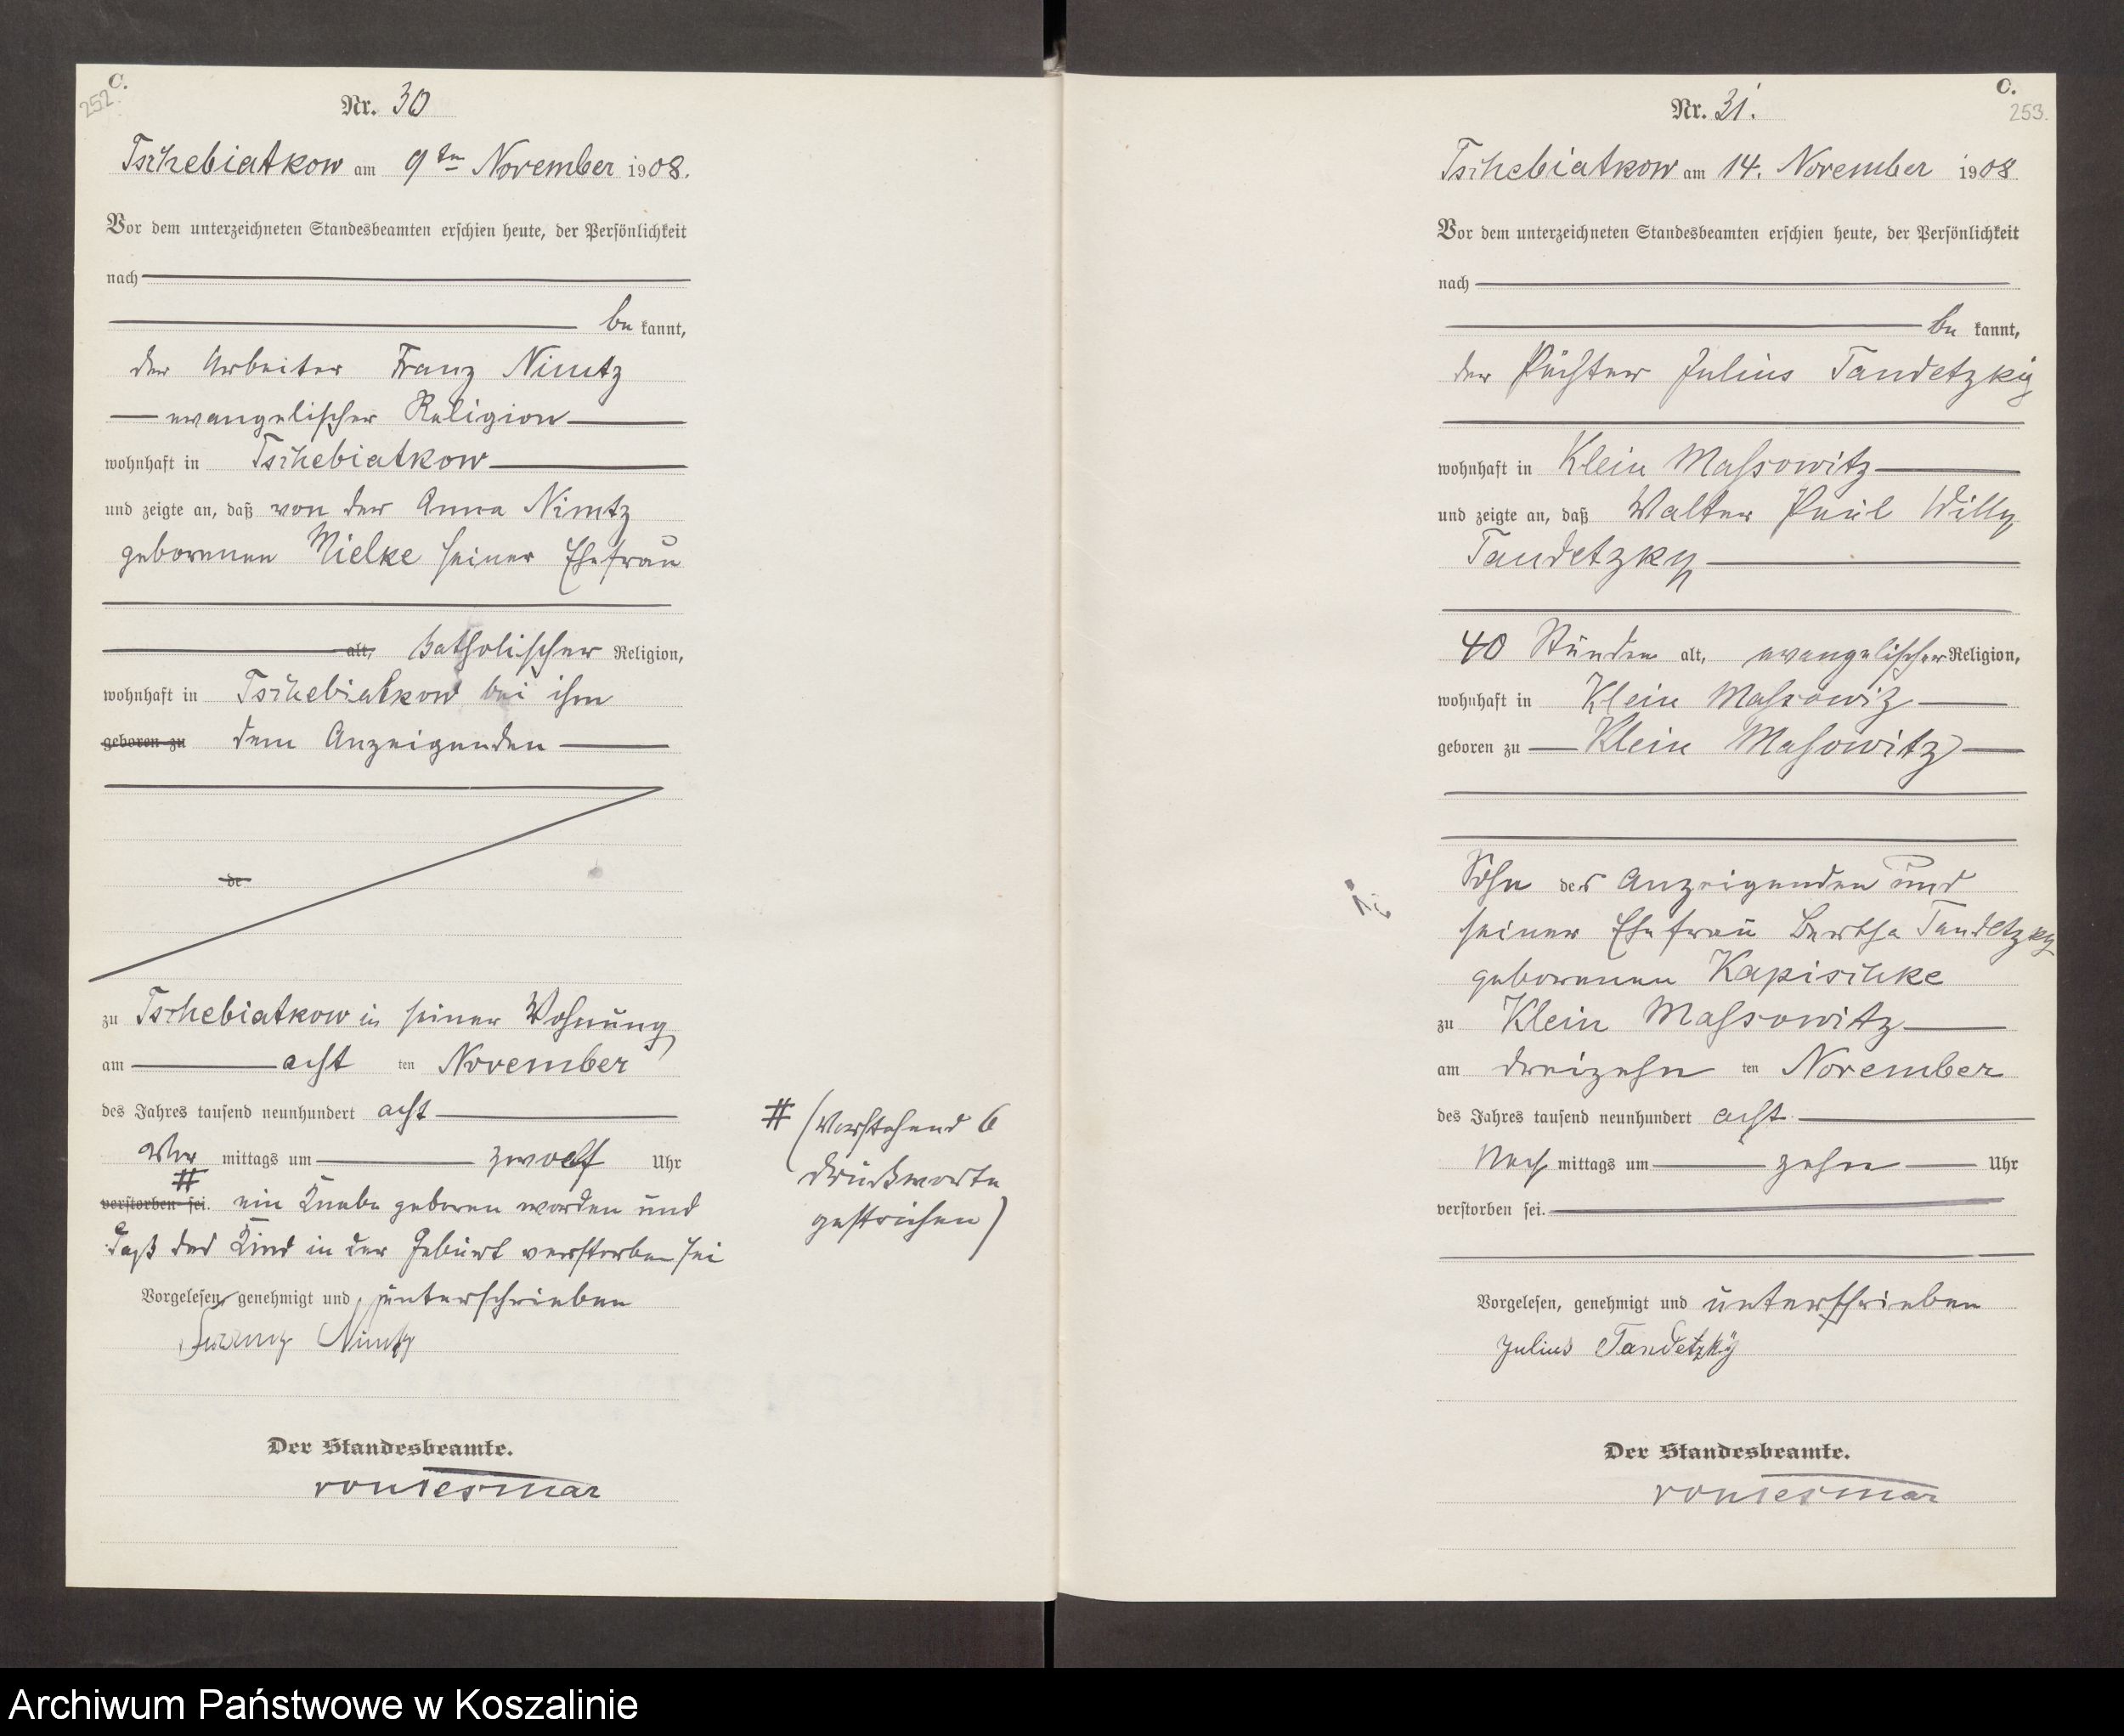 C.
252.
Nr. 30
Tschebiatkow am 9ten November 1908.
Vor dem unterzeichneten Standesbeamten erschien heute, der Persönlichkeit
nach
be kannt,
der Arbeiter Franz Nimtz
evangelischer Religion
wohnhaft in Tschebiatkow
und zeigte an, daß von der Anna Nimtz
geborenen Mielke seiner Ehefrau
alt, katholischer Religion,
wohnhaft in Tschebiatkow bei ihm
geboren zu dem Anzeigenden
de
zu Tschebiatkow in seiner Wohnung
am acht ten November
des Jahres tausend neunhundert acht
Vor mittags um zwoelf Uhr
#
verstorben sei. ein Knabe geboren worden und
daß das Kind in der Geburt verstorben sei
Vorgelesen, genehmigt und unterschrieben
Franz Nimtz
Der Standesbeamte.
# (Vorstehend 6
Druckworte
gestrichen)
C.
253.
Nr. 31.
Tschebiatkow am 14. November 1908
Vor dem unterzeichneten Standesbeamten erschien heute, der Persönlichkeit
nach
be kannt,
der Pächter Julius Tandetzky
wohnhaft in Klein Massowitz
und zeigte an, daß Walter Paul Willy
Tandetzky
40 Stunden alt, evangelischer Religion,
wohnhaft in Klein Massowiz
geboren zu Klein Masowitz
Sohn des Anzeigenden und
seiner Ehefrau Bertha Tandetzky
geborenen Kapischke
zu Klein Massowitz
am dreizehn ten November
des Jahres tausend neunhundert acht
Nach mittags um zehn Uhr
verstorben sei.
Vorgelesen, genehmigt und unterschrieben
Julius Tandetzky
Der Standesbeamte.
Archiwum Państwowe w Koszalinie